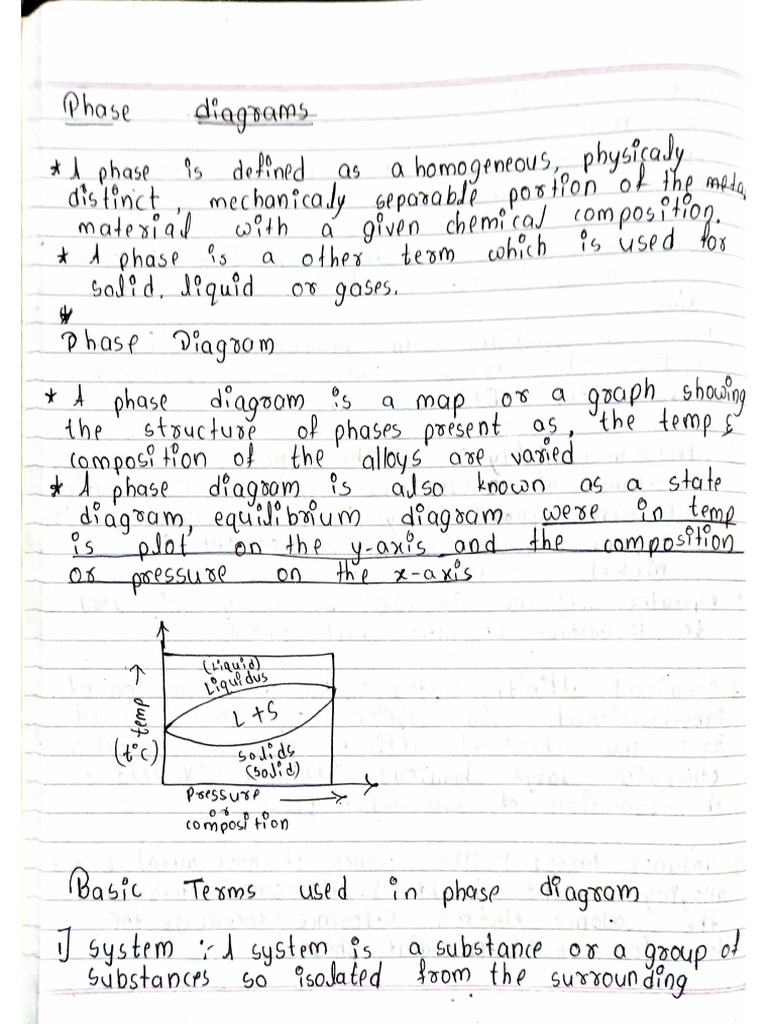 Phase diagrams
* A phase is defined as a homogeneous, physicaly
distinct, mechanicaly separable portion of the meta
material with a given chemical composition.
* A phase is a other term which is used for
solid, liquid or gases.
Phase Diagram
* A phase diagram is a map or a graph showing
the structure of phases present as, the temp &
composition of the alloys are varied
* A phase diagram is also known as a state
diagram, equilibrium diagram were in temp
is plot on the y-axis and the composition
or pressure on the x-axis
(Liquid)
Liquidus
L+S
temp
(t°c)
Solids
(Solid)
Pressure
or
composition
Basic Terms used in phase diagram
1] system :- A system is a substance or a group of
substances so isolated from the surrounding